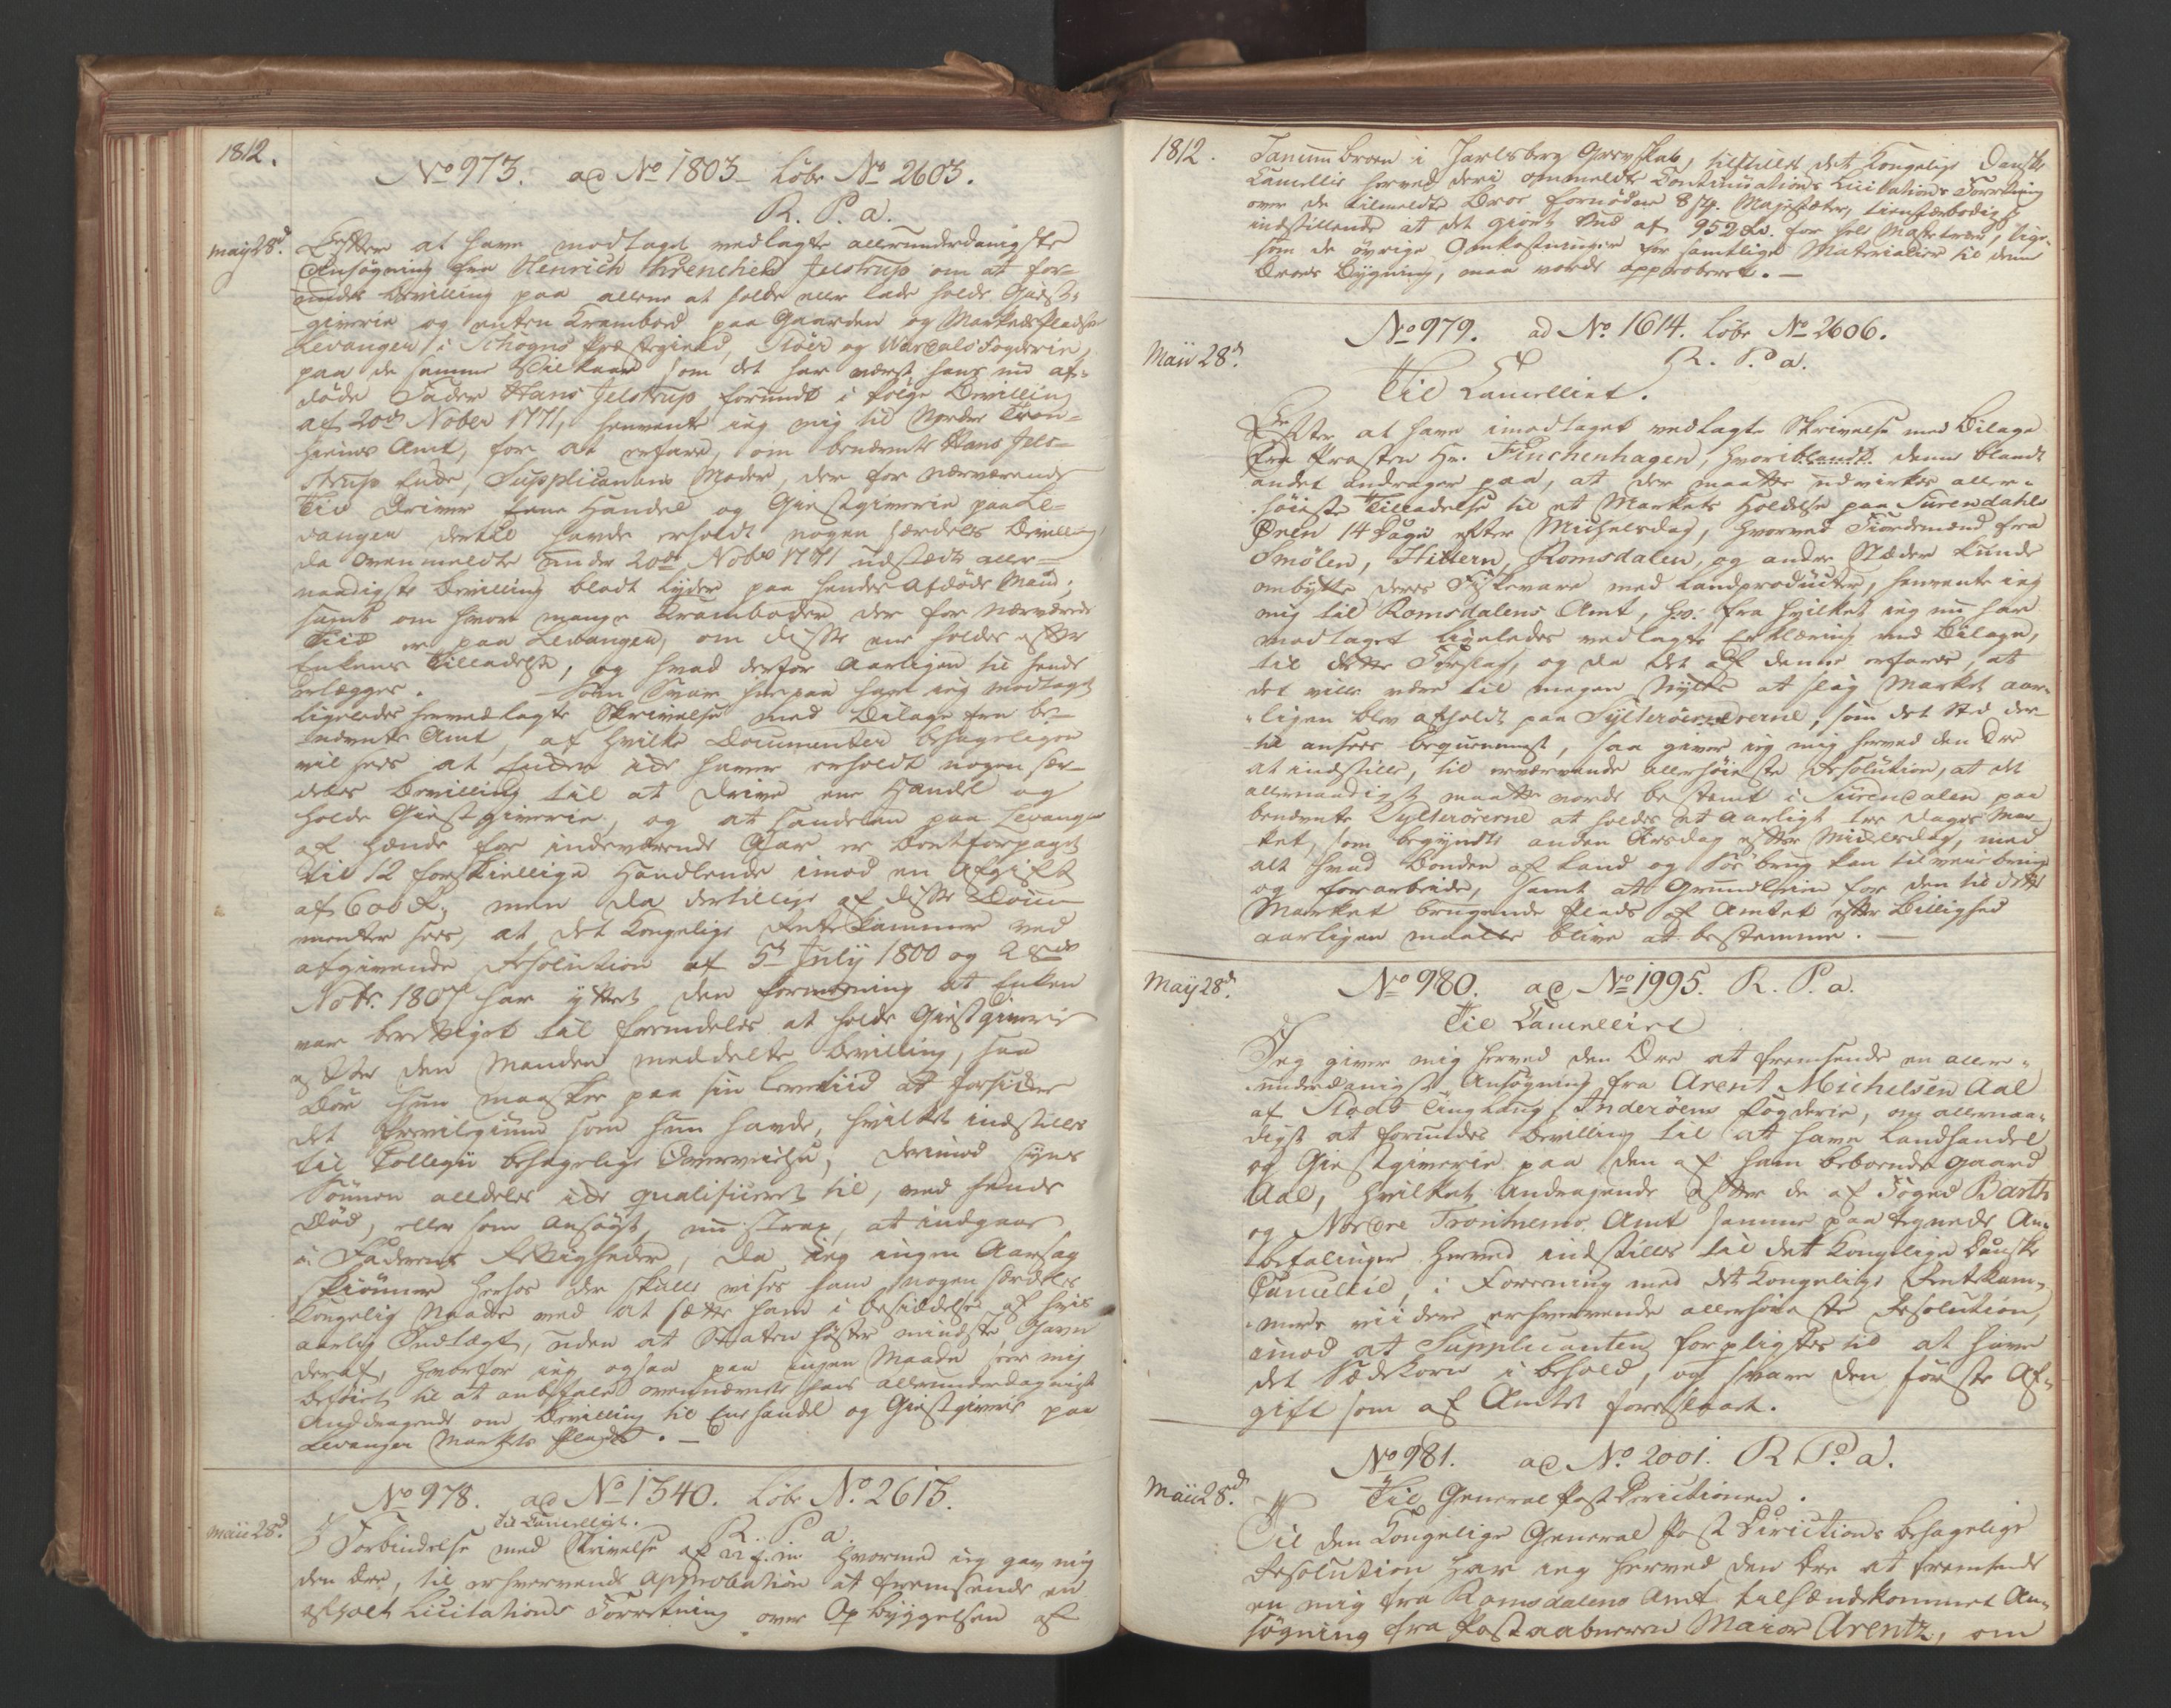 1812.
No 973. ad No 1803 - Løbe No 2603.
R. P. a.
May 28d. Efter at have modtaget vedlagte allerunderdanigste
Ansøgning fra Henrich Jelstrup om at for-
undes Bevilling paa allene at holde eller lade holde Giæst-
giverie og enten Krambod paa Gaarden og Markeds Pladsen
Levanger i Schogns Præstegield, Stør og Værdals Fogderie,
paa de samme Vilkaar som det har været hans nu af-
døde Fader Hans Jelstrup forundt i følge Bevilling
af 20de Nober 1771, henvendte ieg mig til Nordre Tron-
hiems Amt, for at erfare, om benævnte Hans Jels-
trups Enke, Supplicantens Moder, der for nærværende
Tid driver Handel og Giestgiverie paa Le-
vanger dertil havde erholdt nogen særdeles Bevilling
da ovenmeldte under 20de Nobr 1771 udstædte aller-
naadigste Bevilling blodt lyder paa hendes afdøde Mand;
samt om hvor mange Kramboder der for nærværende
Tiid er paa Levanger, om disse ene holdes efter
Enkens Tilladelse, og hvad derfor aarligen til hende
erlægges. Som Svar herpaa har ieg modtaget
ligeledes hervedlagte Skrivelse med Bilage fra be-
nævnte Amt, af hvilke Documenter behageligen
vil sees at Enken ikke haver erholdt nogen sær-
deles Bevilling til at drive ene Handel og
holde Giestgiverie, og at Handelen paa Levanger
af hende for indeværende Aar er bortforpagtet
til 12 forskiellige Handlende imod en Afgift
af 600 Rd; men da dertillige af disse Docu-
menter sees, at det Kongelige Rentekammer ved
afgivende Resolution af 5te July 1800 og 28de
Nobr. 1807 har yttret den formening at Enken
var berettiget til fremdeles at holde Giestgiverie
efter den Manden meddelte Bevilling, saa
bør hun maaskee paa sin Levetiid at
det Previlegium som hun havde, hvilket indstilles
til Collegii behagelige Overveielse, derimod synes
Sønnen alldeles ikke qualificeret til, ved hendes
Død, eller som ansøgt, nu strax, at indgaae
i Faderens Rettigheder, da ieg ingen Aarsag
skiønner hvorfor der skulle vises ham nogen særdeles
Kongelig Naade ved at sætte ham i Besiddelse af
aarlig Indtægt, uden at Staten høster mindste Gavn
deraf, hvorfor ieg ogsaa paa ingen Maade seer mig
beføiet til at anbefale ovennævnte hans allerunderdanigste
Andragende om Bevilling til Eenhandel og Giestgiverie paa
Levanger Markeds Plads. -
No 978. ad No 1340. Løbe No. 2615.
Til Cancelliet.
R. P. a.
Maii 28d. I Forbindelse med Skrivelse af 22 hvormed ieg gav mig
den Ære, til erhvervende Approbation at fremsende en
afholdt Licitations Forretning over Opbyggelsen af
1812. Tanum Broen i Jarlsberg Grevskab, tilstilles det Kongelige Danske
Cancellie herved deri ommeldte Continuations Licitations Forretning
over de tilmeldte Broe fornødne 8 Stk. tienstærbødigst
indstillende at det giorte Bud af 952 Rd. for hele , lige-
som de øvrige Omkostninger for samtlige Materialier til denne
Broes Bygning, maa vorde approberet. -
No 979. ad No. 1614. Løbe No 2606.
Maii 28d. R. P. a.
Til Cancelliet.
Efter at have imodtaget vedlagte Skrivelse med Bilage
fra Præsten Hr. Finchenhagen, hvoriblandt denne blandt
andet andrager paa, at der maatte udvirkes aller-
høieste Tilladelse til et Markets Holdelse paa Surendahls
Øren 14 Dage efter Michelsdag, hvorved Fiordemænd fra
Smølen, Hittern, Romsdalen, og andre Stæder kunde
ombytte deres Fiskevare med Landproducter, henvendte ieg
mig til Romsdalens Amt, fra hvilket ieg nu har
modtaget ligeledes vedlagte Erklæring med Bilage,
til dette Forslag, og da det af denne erfares, at
det ville være til megen Nytte at slig Market aar-
ligen blev afholdt paa Sylterøerne, som det Sted der-
til ansees beqvemmest, saa giver ieg mig herved den Ære
at indstille, til erværvende allerhøieste Resolution, at det
allernaadigst maatte vorde bestemt i Surendalen paa
benævnte Sylterørerne at holdes et aarligt tre Dages Mar-
ket, som begyndte anden Tirsdag efter Michelsdag, med
alt hvad Bonden af Land og Søe brug kan tilveiebringe
og forarbeide, samt at Grundleien for den til dette
Market brugende Plads af Amtet efter Billighed
aarligen maatte blive at bestemme. -
May 28d. No 980. ad No 1995. R. P. a.
Til Cancelliet
Jeg giver mig herved den Ære at fremsende en aller-
underdanigst Ansøgning fra Arent Michelsen Aal
af Stods Tinglaug, Inderøens Fogderie, om allernaa-
digst at forundes Bevilling til at have Landhandel
og Giestgiverie paa den af ham beboende Gaard
Aal, hvilket Andragende efter de af Foged Barth
og Nordre Tronhiems Amt samme paategnede An-
befalinger herved indstilles til det Kongelige Danske
Cancellie, i Forening med det Kongelige Rentekam-
mers videre erhvervende allerhøieste Resolution,
imod at Supplicanten forpligtes til at have
det Sædekorn i behold, og svare den første Af-
gift som af Amtet foreslaaet.
No 981. ad No. 2001. R. P. a.
Maii 28d. Til General Post Directionen.
Til den Kongelige General Post Directions behagelige
Resolution har ieg herved den Ære at fremsende
en mig fra Romsdalens Amt tilhændekommet An-
søgning fra Postaabneren Maior Arentz, om